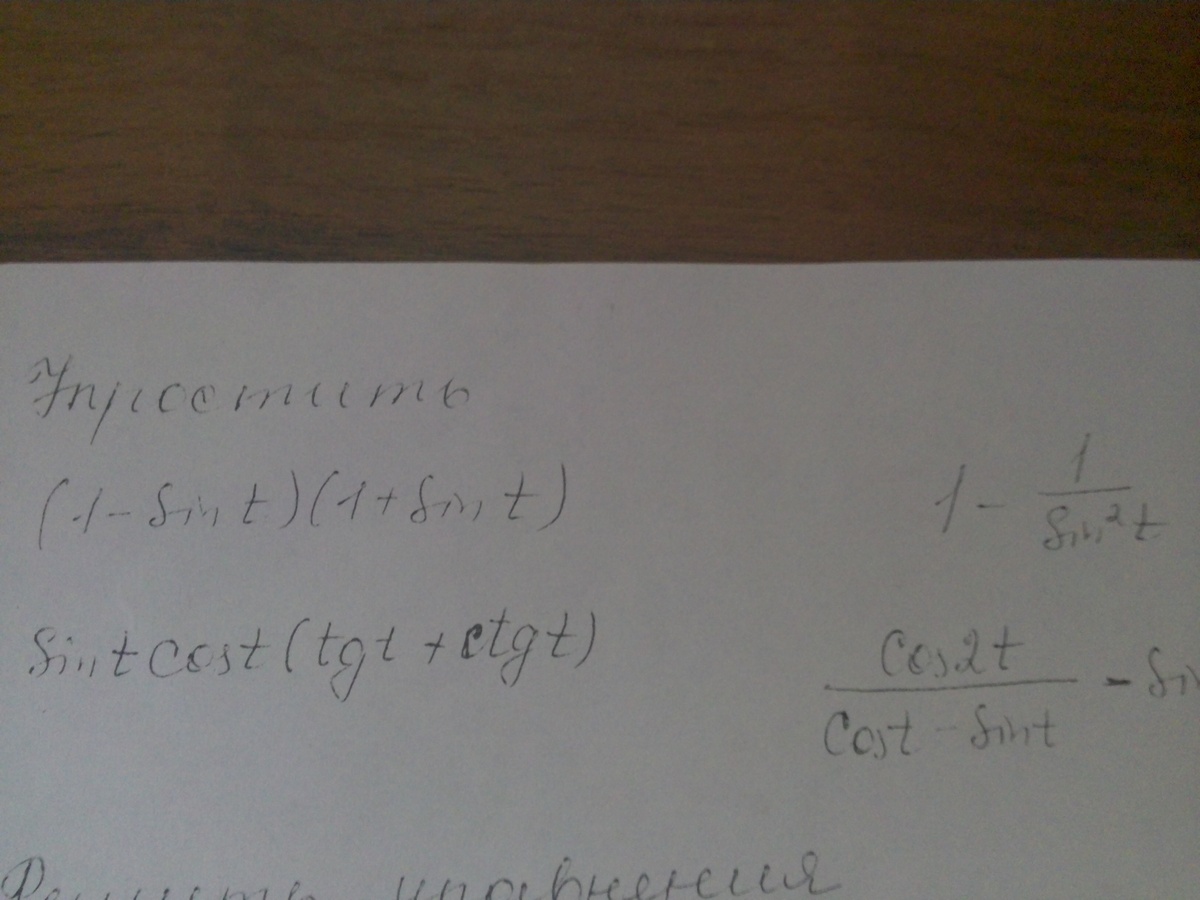 Упростить
(1 - sin t)(1 + sin t)
1 - 1/sin² t
sin t cos t (tg t + ctg t)
cos 2t / (cos t - sin t) - sin
Решить уравнения